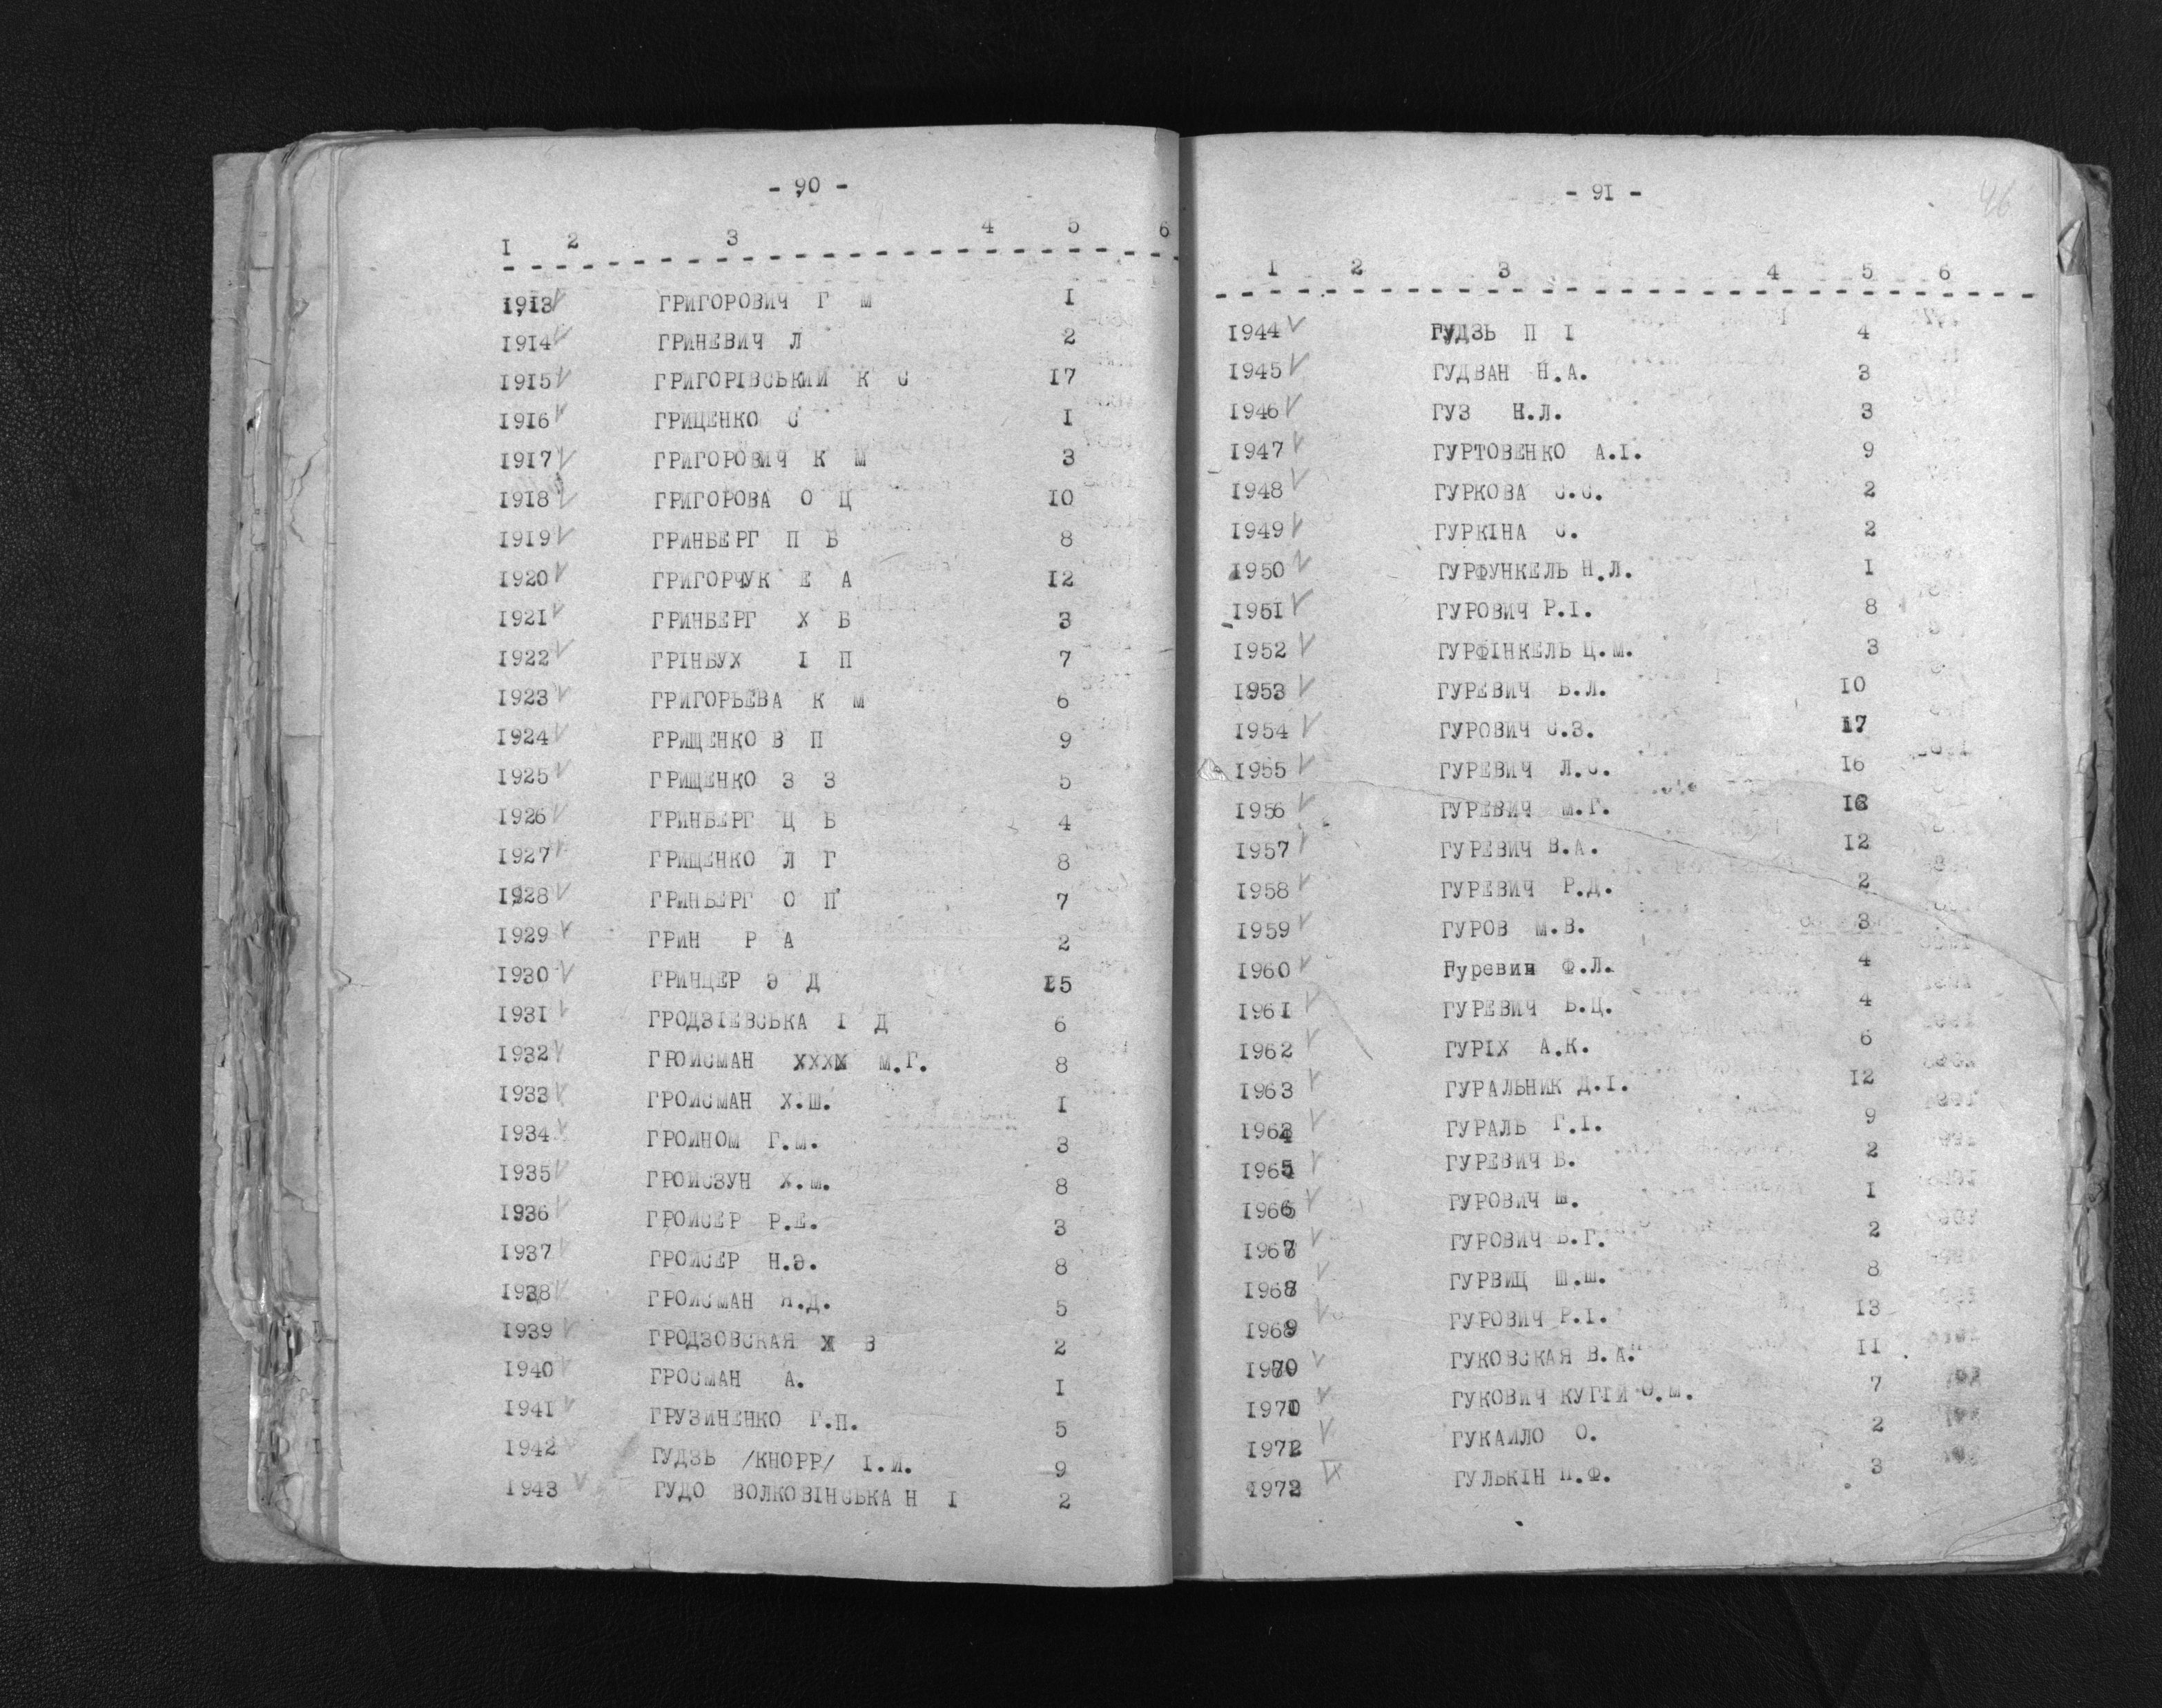 - 90 -
1 2 3 4 5 6
1913 ГРИГОРОВИЧ Г М 1
1914 ГРИНЕВИЧ Л 2
1915 ГРИГОРІВСЬКИЙ К С 17
1916 ГРИЦЕНКО С 1
1917 ГРИГОРОВИЧ К М 3
1918 ГРИГОРОВА О Ц 10
1919 ГРИНБЕРГ П Б 8
1920 ГРИГОРЧУК Е А 12
1921 ГРИНБЕРГ Х Б 3
1922 ГРІНБУХ І П 7
1923 ГРИГОРЬЕВА К М 6
1924 ГРИЩЕНКО В П 9
1925 ГРИЩЕНКО З З 5
1926 ГРИНБЕРГ Ц Б 4
1927 ГРИЩЕНКО Л Г 8
1928 ГРИНБЕРГ О П 7
1929 ГРИН Р А 2
1930 ГРИНЦЕР Э Д 15
1931 ГРОДЗІЕВСЬКА І Д 6
1932 ГРОЙСМАН ХХХХ М.Г. 8
1933 ГРОЙСМАН Х.Ш. 1
1934 ГРОЙНОМ Г.М. 3
1935 ГРОЙСЗУН Х.М. 8
1936 ГРОЙСЕР Р.Е. 3
1937 ГРОЙСЕР Н.Э. 8
1938 ГРОЙСМАН Я.Д. 5
1939 ГРОДЗОВСКАЯ Ж В 2
1940 ГРОСМАН А. 1
1941 ГРУЗИНЕНКО Г.П. 5
1942 ГУДЗЬ /КНОРР/ І.И. 9
1943 ГУДО ВОЛКОВІНСЬКА Н І 2
- 91 -
46
1 2 3 4 5 6
1944 ГУДЗЬ П І 4
1945 ГУДВАН Н.А. 3
1946 ГУЗ Н.Л. 3
1947 ГУРТОВЕНКО А.І. 9
1948 ГУРКОВА С.С. 2
1949 ГУРКІНА С. 2
1950 ГУРФУНКЕЛЬ Н.Л. 1
1951 ГУРОВИЧ Р.І. 8
1952 ГУРФІНКЕЛЬ Ц.М. 3
1953 ГУРЕВИЧ Б.Л. 10
1954 ГУРОВИЧ С.З. 17
1955 ГУРЕВИЧ Л.С. 16
1956 ГУРЕВИЧ М.Г.
1957 ГУРЕВИЧ В.А. 12
1958 ГУРЕВИЧ Р.Д. 2
1959 ГУРОВ М.В. 3
1960 Гуревич Ф.Л. 4
1961 ГУРЕВИЧ Б.Ц. 4
1962 ГУРІХ А.К. 6
1963 ГУРАЛЬНИК Д.І. 12
1964 ГУРАЛЬ Г.І. 9
1965 ГУРЕВИЧ Б. 2
1966 ГУРОВИЧ Ш. 1
1967 ГУРОВИЧ Б.Г. 2
1968 ГУРВИЦ Ш.Ш. 8
1969 ГУРОВИЧ Р.І. 13
1970 ГУКОВСКАЯ В.А. 11
1971 ГУКОВИЧ О.М. 7
1972 ГУКАЙЛО О. 2
1973 ГУЛЬКІН П.Ф. 3